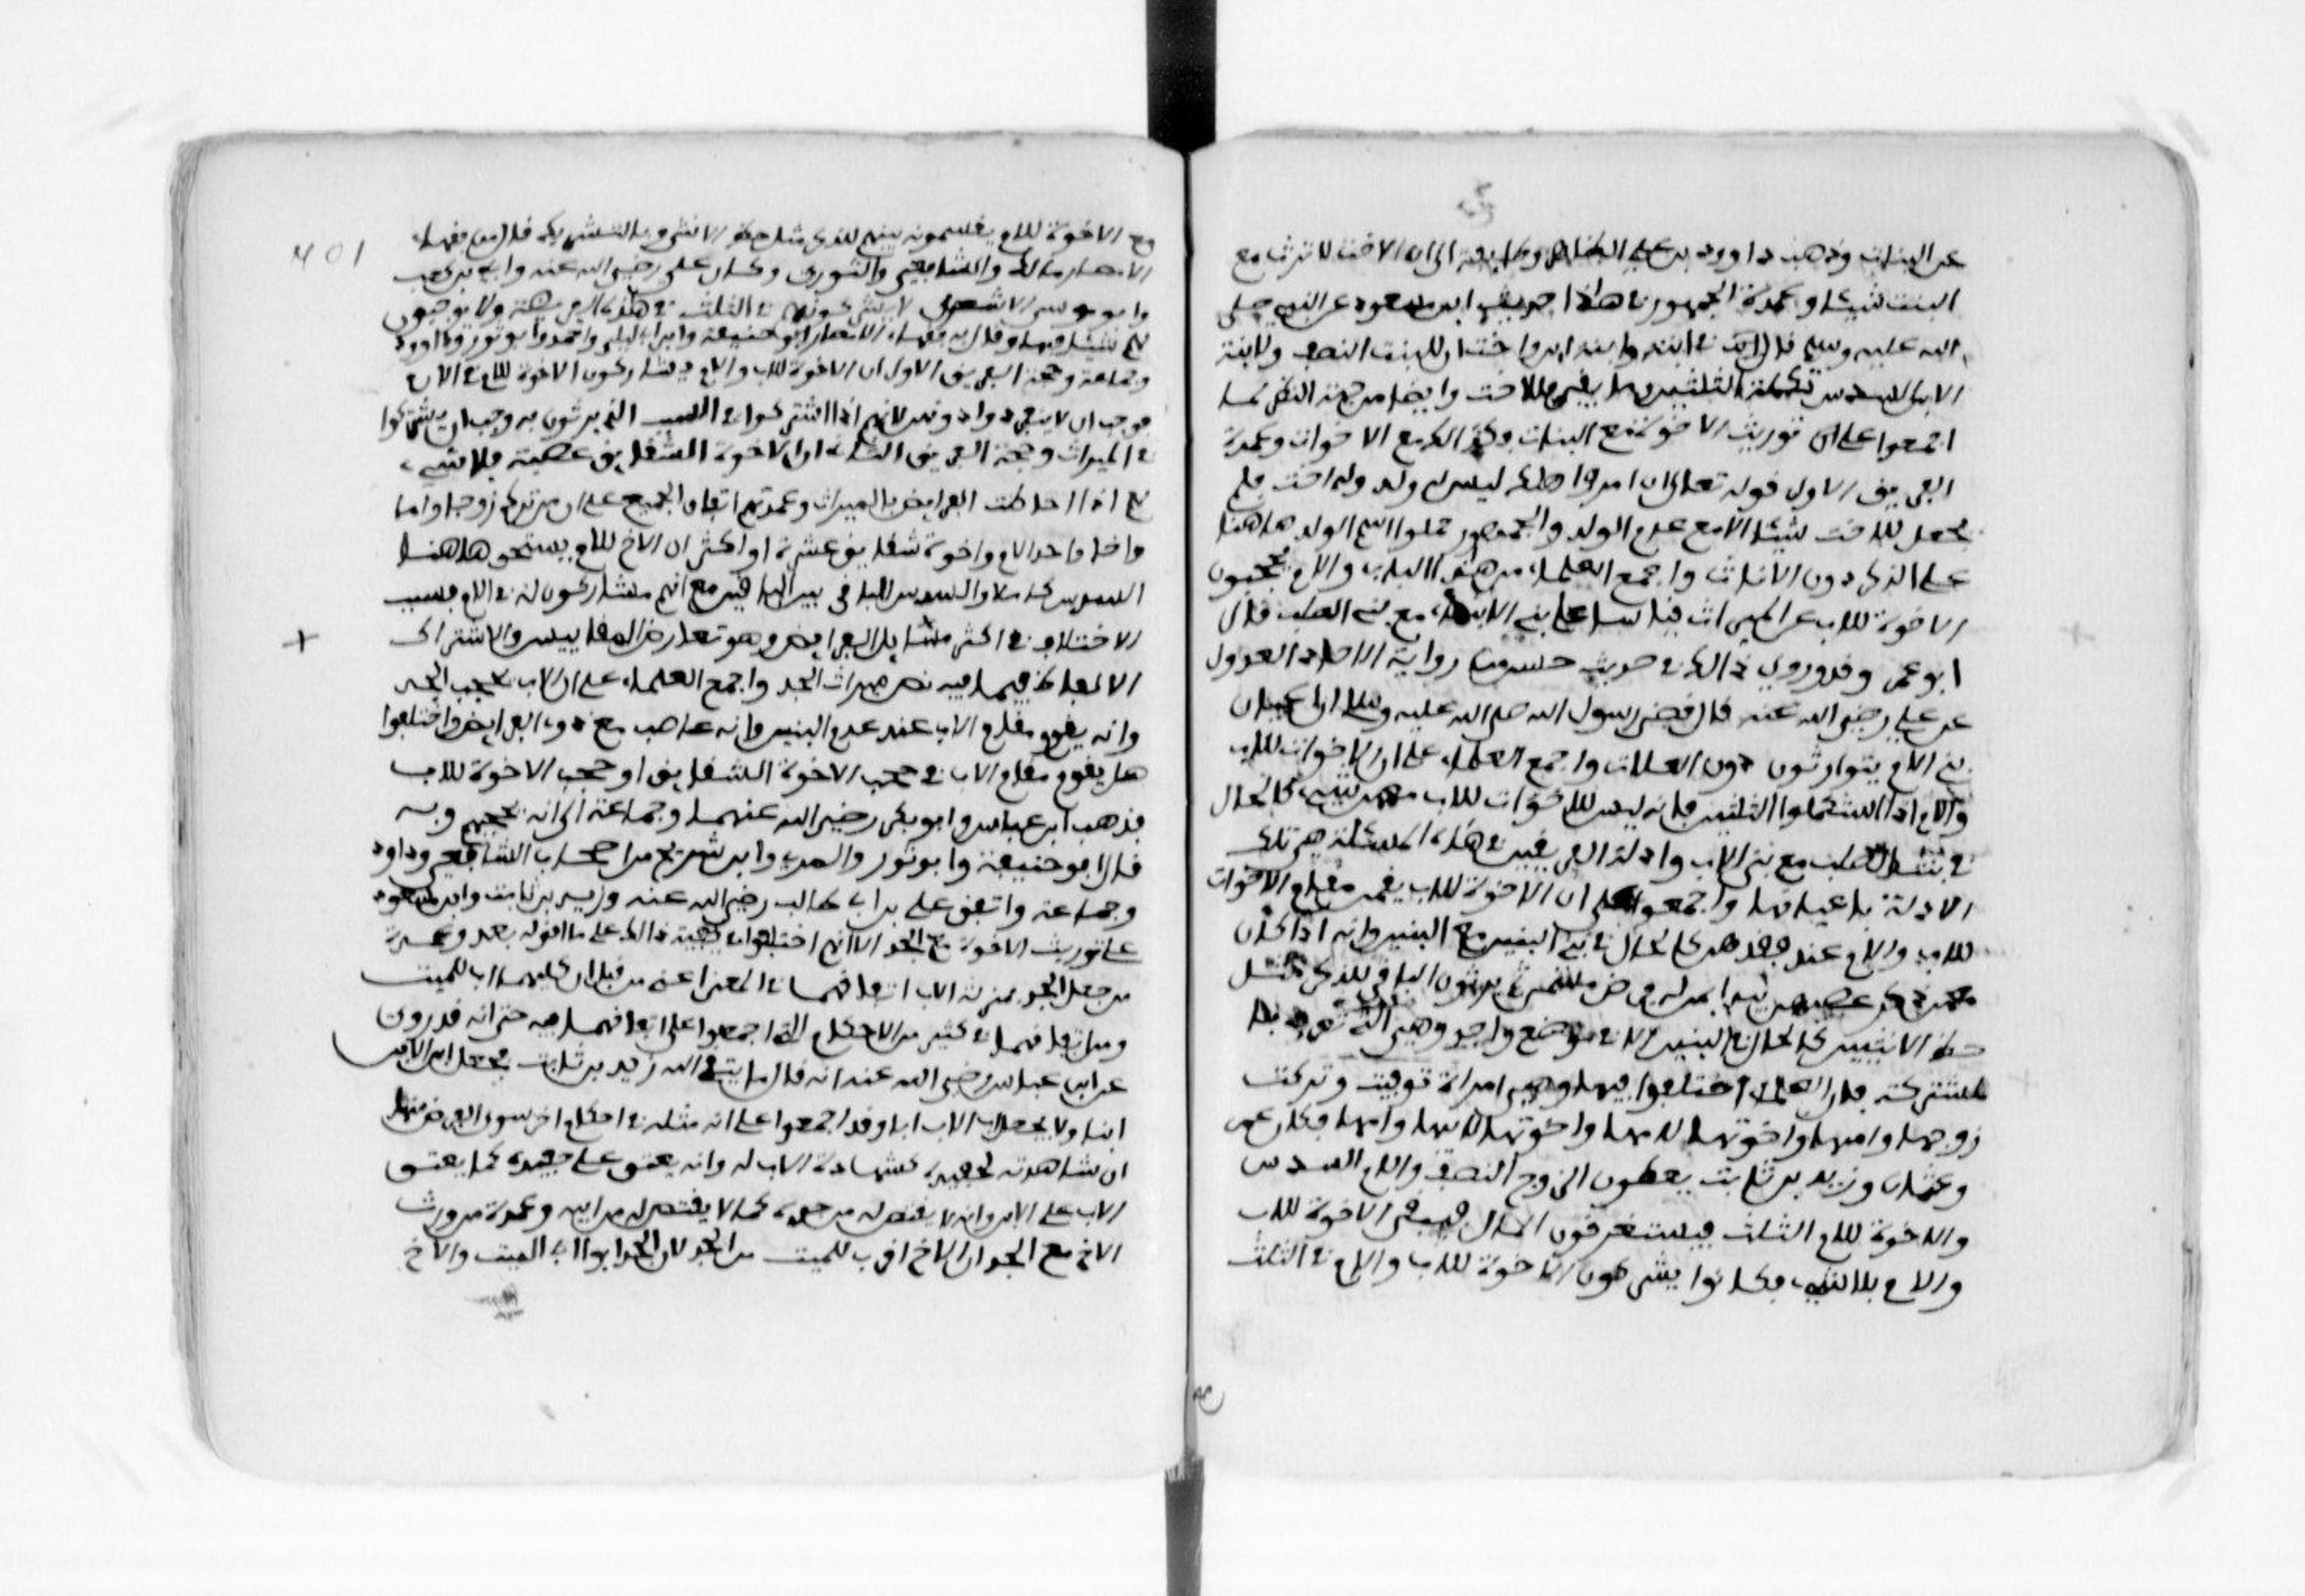 عن البنات وذهب داوود بن علي الظاهري وطايفة الى ان الاخت لا ترث مع
البنت شيئا وعمدة الجمهور في هاذا حديث ابن مسعود عن النبي صلى
الله عليه وسلم قال في ابنة وابنة ابن واخت ان للبنت النصف ولابنة
الابن السدس تكملة الثلثين وما بقي فللاخت وايضا من جهة النظر لما
اجمعوا على توريث الاخوة مع البنات فكذالك مع الاخوات وعمدة
الفريق الاول قوله تعالى ان امرؤا هلك ليس له ولد وله اخت فلم
يجعل للاخت شيئا الا مع عدم الولد والجمهور حملوا اسم الولد هاهنا
على الذكر دون الاناث واجمع العلماء من هذا الباب والام يحجبون
الاخوة للاب عن الميراث قياسا على بني الابناء مع بني الصلب قال
ابو عمر وقد روي ذالك في حديث حسن من رواية الاحاد العدول
عن علي رضي الله عنه قال قضى رسول الله صلى الله عليه وسلم ان اعيان
بني الام يتوارثون دون العلات واجمع العلماء على ان الاخوات للاب
والام اذا استكملوا الثلثين فانه ليس للاخوات للاب معهن شيء كالحال
في بنات الصلب مع بني الابن وادلة الفريقين في هذه المسئلة هي تلك
الادلة باعيانها واجمعوا على ان الاخوة للاب يقمن مقام الاخوات
للاب والام عند فقدهم كالحال في بني البنين مع البنين وانه اذا كان
معهن ذكر عصبهن بان يبدا بمن له فرض مسمى ثم يرثون الباقي للذكر مثل
حظ الانثيين كالحال في البنين الا في موضع واحد وهي التي تعرف با
لمشتركة فان العلماء اختلفوا فيها وهي امراة توفيت وتركت
زوجها وامها واخوتها لامها واخوتها لابيها وامها فكان عمر
وعثمان وزيد بن ثابت يعطون الزوج النصف والام السدس
والاخوة للام الثلث فيستغرقون المال فيبقى الاخوة للاب
والام بلا شيء فكانوا يشركون الاخوة للاب والام في الثلث
401
مع الاخوة للام يقسمونه بينهم للذكر مثل حظ الانثى وبالتشريك قال من فقهاء
الامصار مالك والشافعي والثوري وكان علي رضي الله عنه وابي بن كعب
وابو موسى الاشعري لا يشركونهم في الثلث في هذه الفريضة ولا يوجبون
لهم شيئا فيها وقال به فقهاء الامصار ابو حنيفة وابن ابي ليلى واحمد وابو ثور وداوود
وجماعة وحجة الفريق الاول ان الاخوة للاب والام يشاركون الاخوة للام في الام
فوجب ان لا ينفردوا دونه لانهم اذا اشتركوا في السبب الذي يرثون به وجب ان يشتركوا
في الميراث وحجة الفريق الثاني ان الاخوة الشقايق عصبة فلا شيء
لهم اذا احاطت الفرايض بالميراث وعمدتهم اتفاق الجميع على ان من ترك زوجا واما
واخا واحدا لام واخوة شقايق عشرة او اكثر ان الاخ للام يستحق هاهنا
السدس كاملا والسدس الباقي بين الباقين مع انهم مشاركون له في الام فسبب
الاختلاف في اكثر مسايل الفرايض هو تعارض المقاييس والاشتراك
الالفاظ فيما فيه نص ميراث الجد واجمع العلماء على ان الاب يحجب الجد
وانه يقوم مقام الاب عند عدم البنين وانه عاصب مع ذوي الفرايض واختلفوا
هل يقوم مقام الاب في حجب الاخوة الشقايق او حجب الاخوة للاب
فذهب ابن عباس وابو بكر رضي الله عنهما وجماعة الى انه يحجبهم وبه
قال ابو حنيفة وابو ثور والمزني وابن شريح من اصحاب الشافعي وداود
وجماعة واتفق علي بن ابي طالب رضي الله عنه وزيد بن ثابت وابن مسعود
على توريث الاخوة مع الجد الا انهم اختلفوا في كيفية ذالك على ما اقوله بعد وعمدة
من جعل الجد بمنزلة الاب اتفاقهما في المعنى اعني من قبل ان كليهما اب للميت
ومن اتفاقهما في كثير من الاحكام التي اجمعوا على اتفاقهما فيه حتى انه قد روي
عن ابن عباس رضي الله عنه انه قال اما يتقي الله زيد بن ثابت يجعل ابن الابن
ابنا ولا يجعل اب الاب ابا وقد اجمعوا على انه مثله في احكام اخر سوى الفرض منها
ان شاهدته لحفيده كشهادة الاب له وانه يعتق على حفيده كما يعتق
الاب على الابن وانه لا يقتص له من جده كما لا يقتص له من ابيه وعمدة من ورث
الاخ مع الجد ان الاخ اقرب للميت من الجد لان الجد ابو اب الميت والاخ